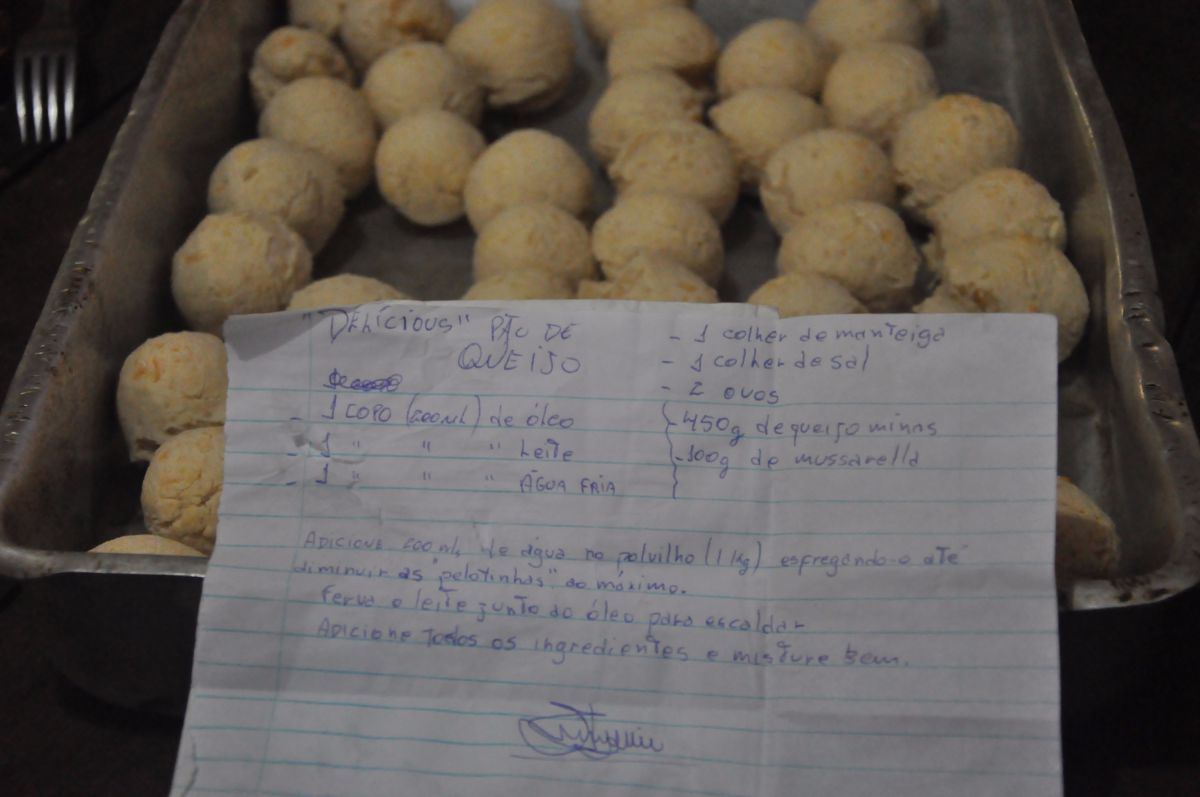 "DELÍCIOUS" PÃO DE
QUEIJO
- 1 COPO (200ml) de óleo
- 1 " " " Leite
- 1 " " " ÁGUA FRIA
- 1 colher de manteiga
- 1 colher de sal
- 2 ovos
- 450g de queijo minas
- 100g de mussarella
Adicione 200ml de água no polvilho (1 Kg) esfregando-o até
diminuir as "pelotinhas" ao máximo.
Ferva o leite junto ao óleo para escaldar
Adicione todos os ingredientes e misture bem.